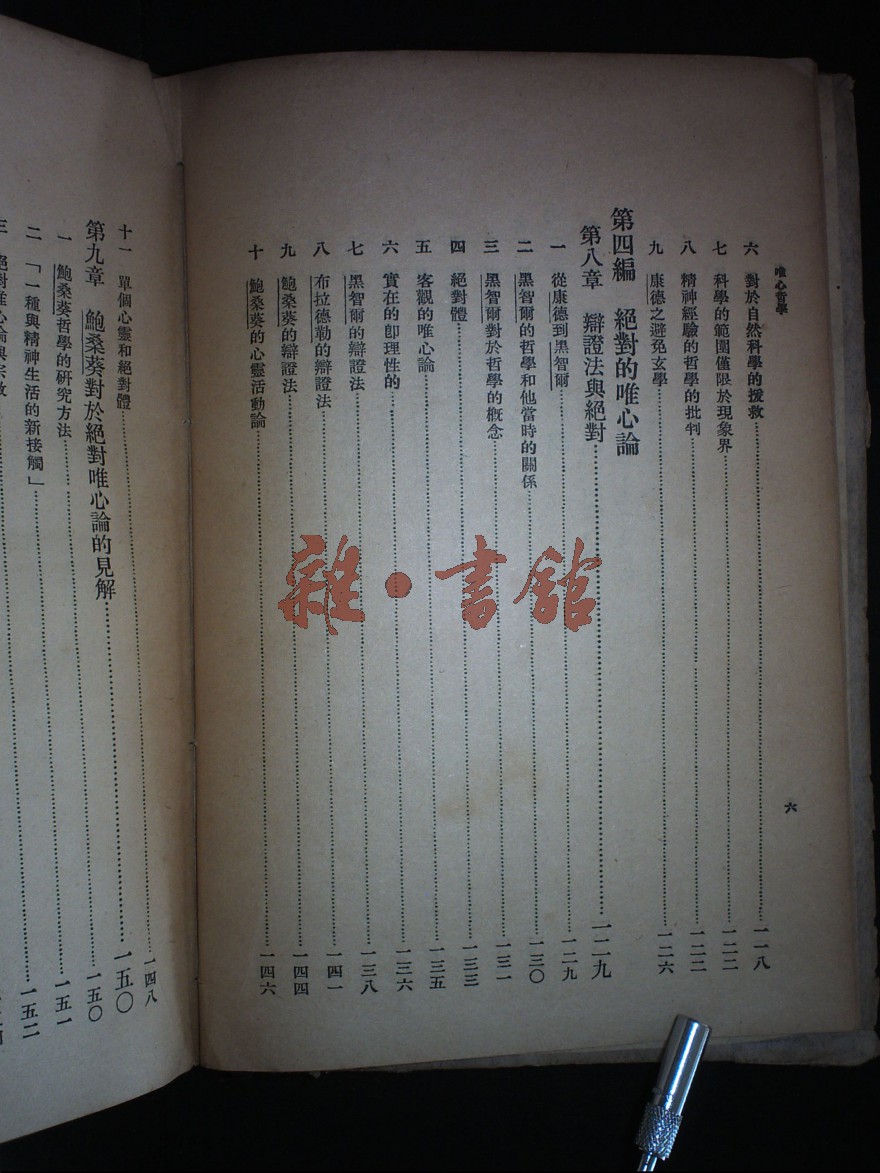 唯心哲學
六　對於自然科學的援救……一一八
七　科學的範圍僅限於現象界……一二二
八　精神經驗的哲學的批判……一二二
九　康德之避免玄學……一二六
第四編　絕對的唯心論
第八章　辯證法與絕對……一二九
一　從康德到黑智爾……一二九
二　黑智爾的哲學和他當時的關係……一三〇
三　黑智爾對於哲學的概念……一三一
四　絕對體……一三三
五　客觀的唯心論……一三五
六　實在的卽理性的……一三六
七　黑智爾的辯證法……一三八
八　布拉德勒的辯證法……一四一
九　鮑桑葵的辯證法……一四四
十　鮑桑葵的心靈活動論……一四六
六
十一　單個心靈和絕對體……一四八
第九章　鮑桑葵對於絕對唯心論的見解……一五〇
一　鮑桑葵哲學的研究方法……一五〇
一五一
二　「一種與精神生活的新接觸」……一五二
三　絕對唯心論與宗教
雜·書館